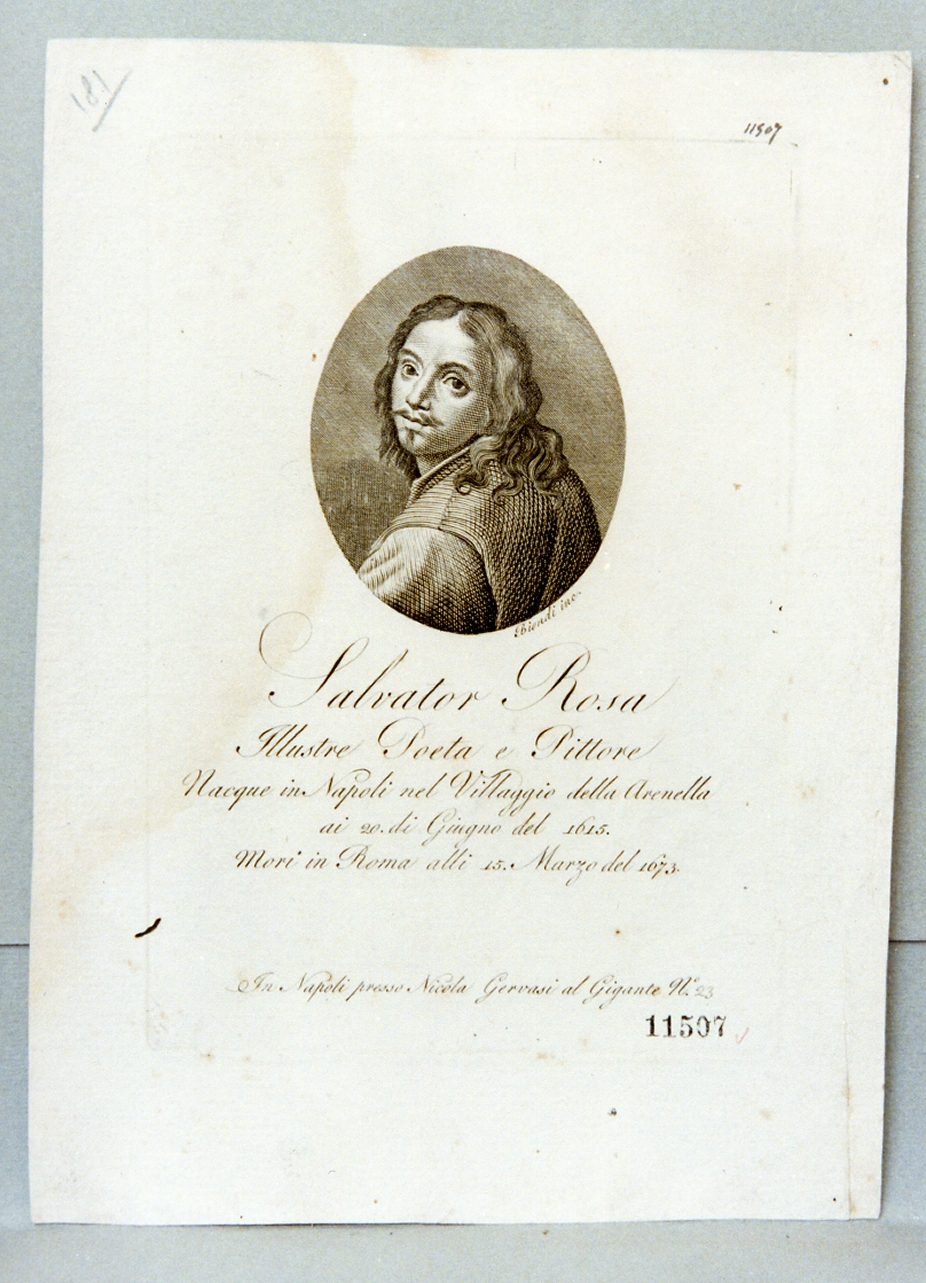 181
11507
Biondi inc.
Salvator Rosa
Illustre Poeta e Pittore
Nacque in Napoli nel Villaggio della Arenella
ai 20. di Giugno del 1615.
Morì in Roma alli 15. Marzo del 1673.
In Napoli presso Nicola Gervasi al Gigante N.° 23
11507